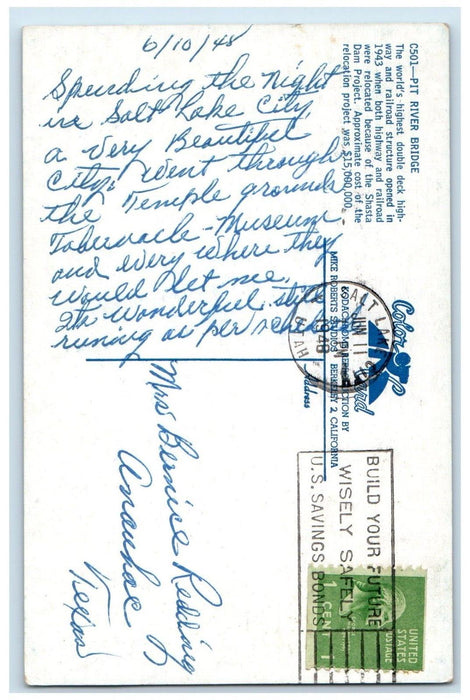 6/10/48
Spending the night
in Salt Lake City
a very Beautiful
City. Went through
the Temple grounds
Tabernacle - Museum
and every where they
would let me.
Its wonderful still
runing as per sched
Mrs Bernice Redding
Anauhac
Texas
C501—PIT RIVER BRIDGE
The world's highest double deck high-
way and railroad structure opened in
1943 when both highway and railroad
were relocated because of the Shasta
Dam Project. Approximate cost of the
relocation project was $15,000,000.
Color Card
KODACHROME REPRODUCTION BY
MIKE ROBERTS STUDIOS BERKELEY 2, CALIFORNIA
Address
SALT LAKE
JUN 11
1948
UTAH
BUILD YOUR FUTURE
WISELY SAFELY
U.S. SAVINGS BONDS
UNITED
STATES
POSTAGE
1 CENT 1